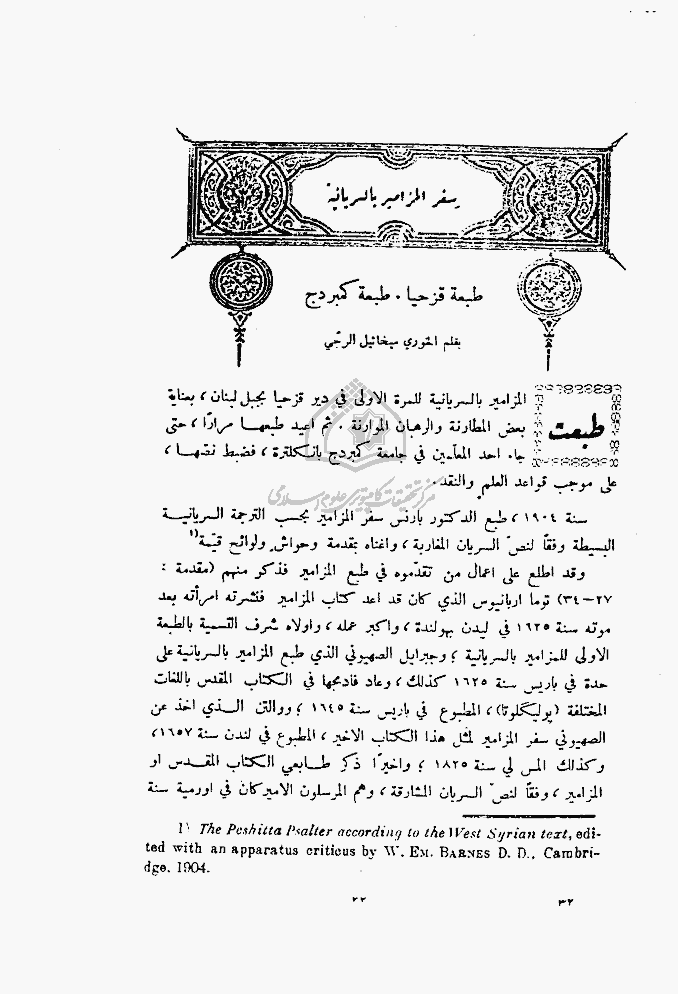 سفر المزامير بالسريانية
طبعة قزحيا . طبعة كمبردج
بقلم الخوري ميخائيل الرجّي
طبعت المزامير بالسريانية للمرة الاولى في دير قزحيا بجبل لبنان ، بعناية
بعض المطارنة والرهبان الموارنة . ثم اعيد طبعهـا مرارًا ، حتى
جاء احد المعلّمين في جامعة كمبردج بانكلترة ، فضبط نصّهـا ،
على موجب قواعد العلم والنقد.
سنة ١٩٠٤ ، طبع الدكتور بارنس سفر المزامير بحسب الترجمة السريانيـة
البسيطة وفقًا لنصّ السريان المغاربة ، واغناه بمقدمة وحواشٍ ولوائح قيّمة ¹⁾
وقد اطلع على اعمال من تقدّموه في طبع المزامير فذكر منهم (مقدمة :
٢٧–٣٤) توما اربانيوس الذي كان قد اعد كتاب المزامير فنشرته امرأته بعد
موته سنة ١٦٢٥ في ليدن بهولندة ، واكبر عمله ، واولاه شرف التسمية بالطبعة
الاولى للمزامير بالسريانية ؛ وجبرايل الصهيوني الذي طبع المزامير بالسريانية على
حدة في باريس سنة ١٦٢٥ كذلك ، وعاد فادمجها في الكتاب المقدس باللغات
المختلفة (بوليكلوتا) ، المطبوع في باريس سنة ١٦٤٥ ؛ ووالتن الـذي اخذ عن
الصهيوني سفر المزامير لمثل هذا الكتاب الاخير ، المطبوع في لندن سنة ١٦٥٧ ،
وكذلك المس لي سنة ١٨٢٥ ؛ واخيرًا ذكر طـابعي الكتاب المقـدس او
المزامير ، وفقًا لنصّ السريان المشارقة ، وهم المرسلون الاميركان في اورمية سنة
1) The Peshitta Psalter according to the West Syrian text, edi-
ted with an apparatus criticus by W. EM. BARNES D. D., Cambri-
dge, 1904.
٢٢ ٣٢
مركز تحقيقات كامپيوترى علوم اسلامى